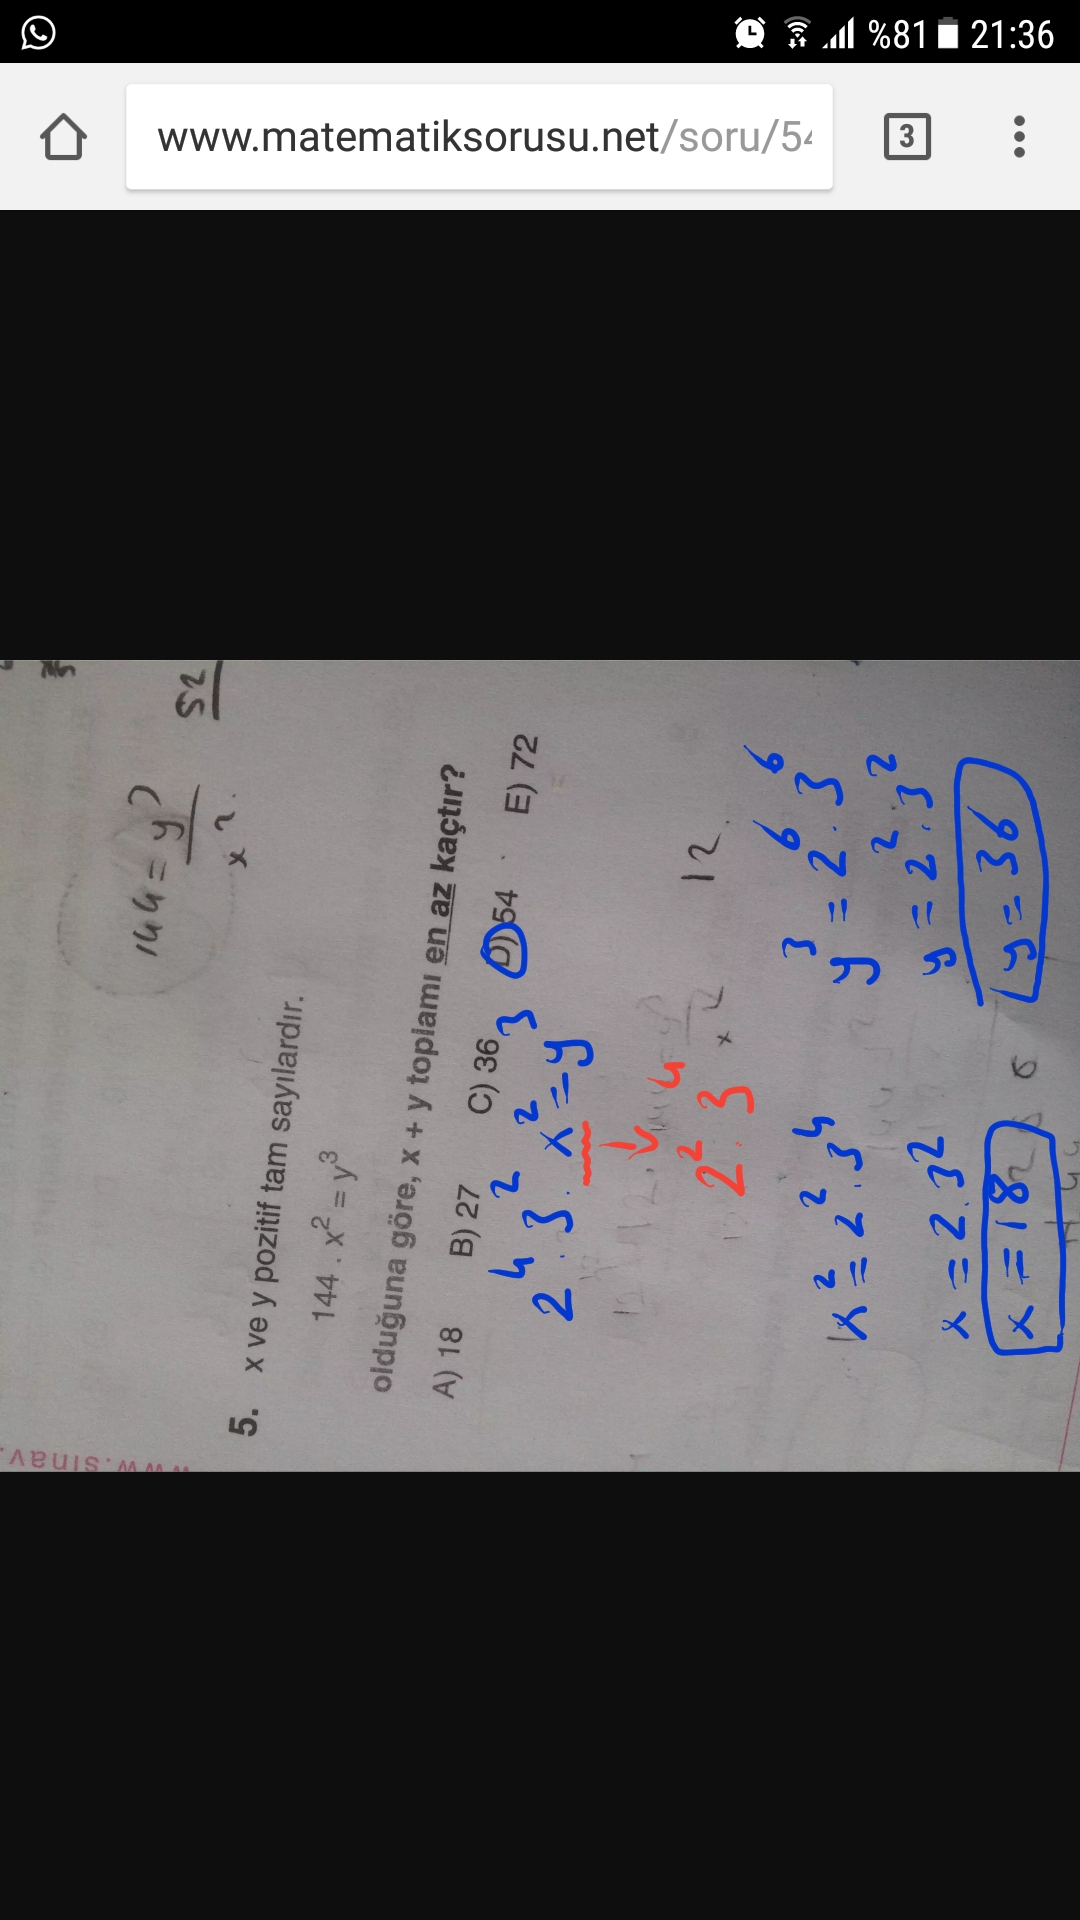 %81 21:36
www.matematiksorusu.net/soru/54
3
144 = y³
x²
52
5. x ve y pozitif tam sayılardır.
144 . x² = y³
olduğuna göre, x + y toplamı en az kaçtır?
A) 18 B) 27 C) 36 D) 54 E) 72
2⁴.3².x²=y³
2².3⁴
12
x² = 2².3⁴
x = 2.3²
x = 18
y³ = 2⁶.3⁶
y = 2².3²
y = 36
www.sınav.